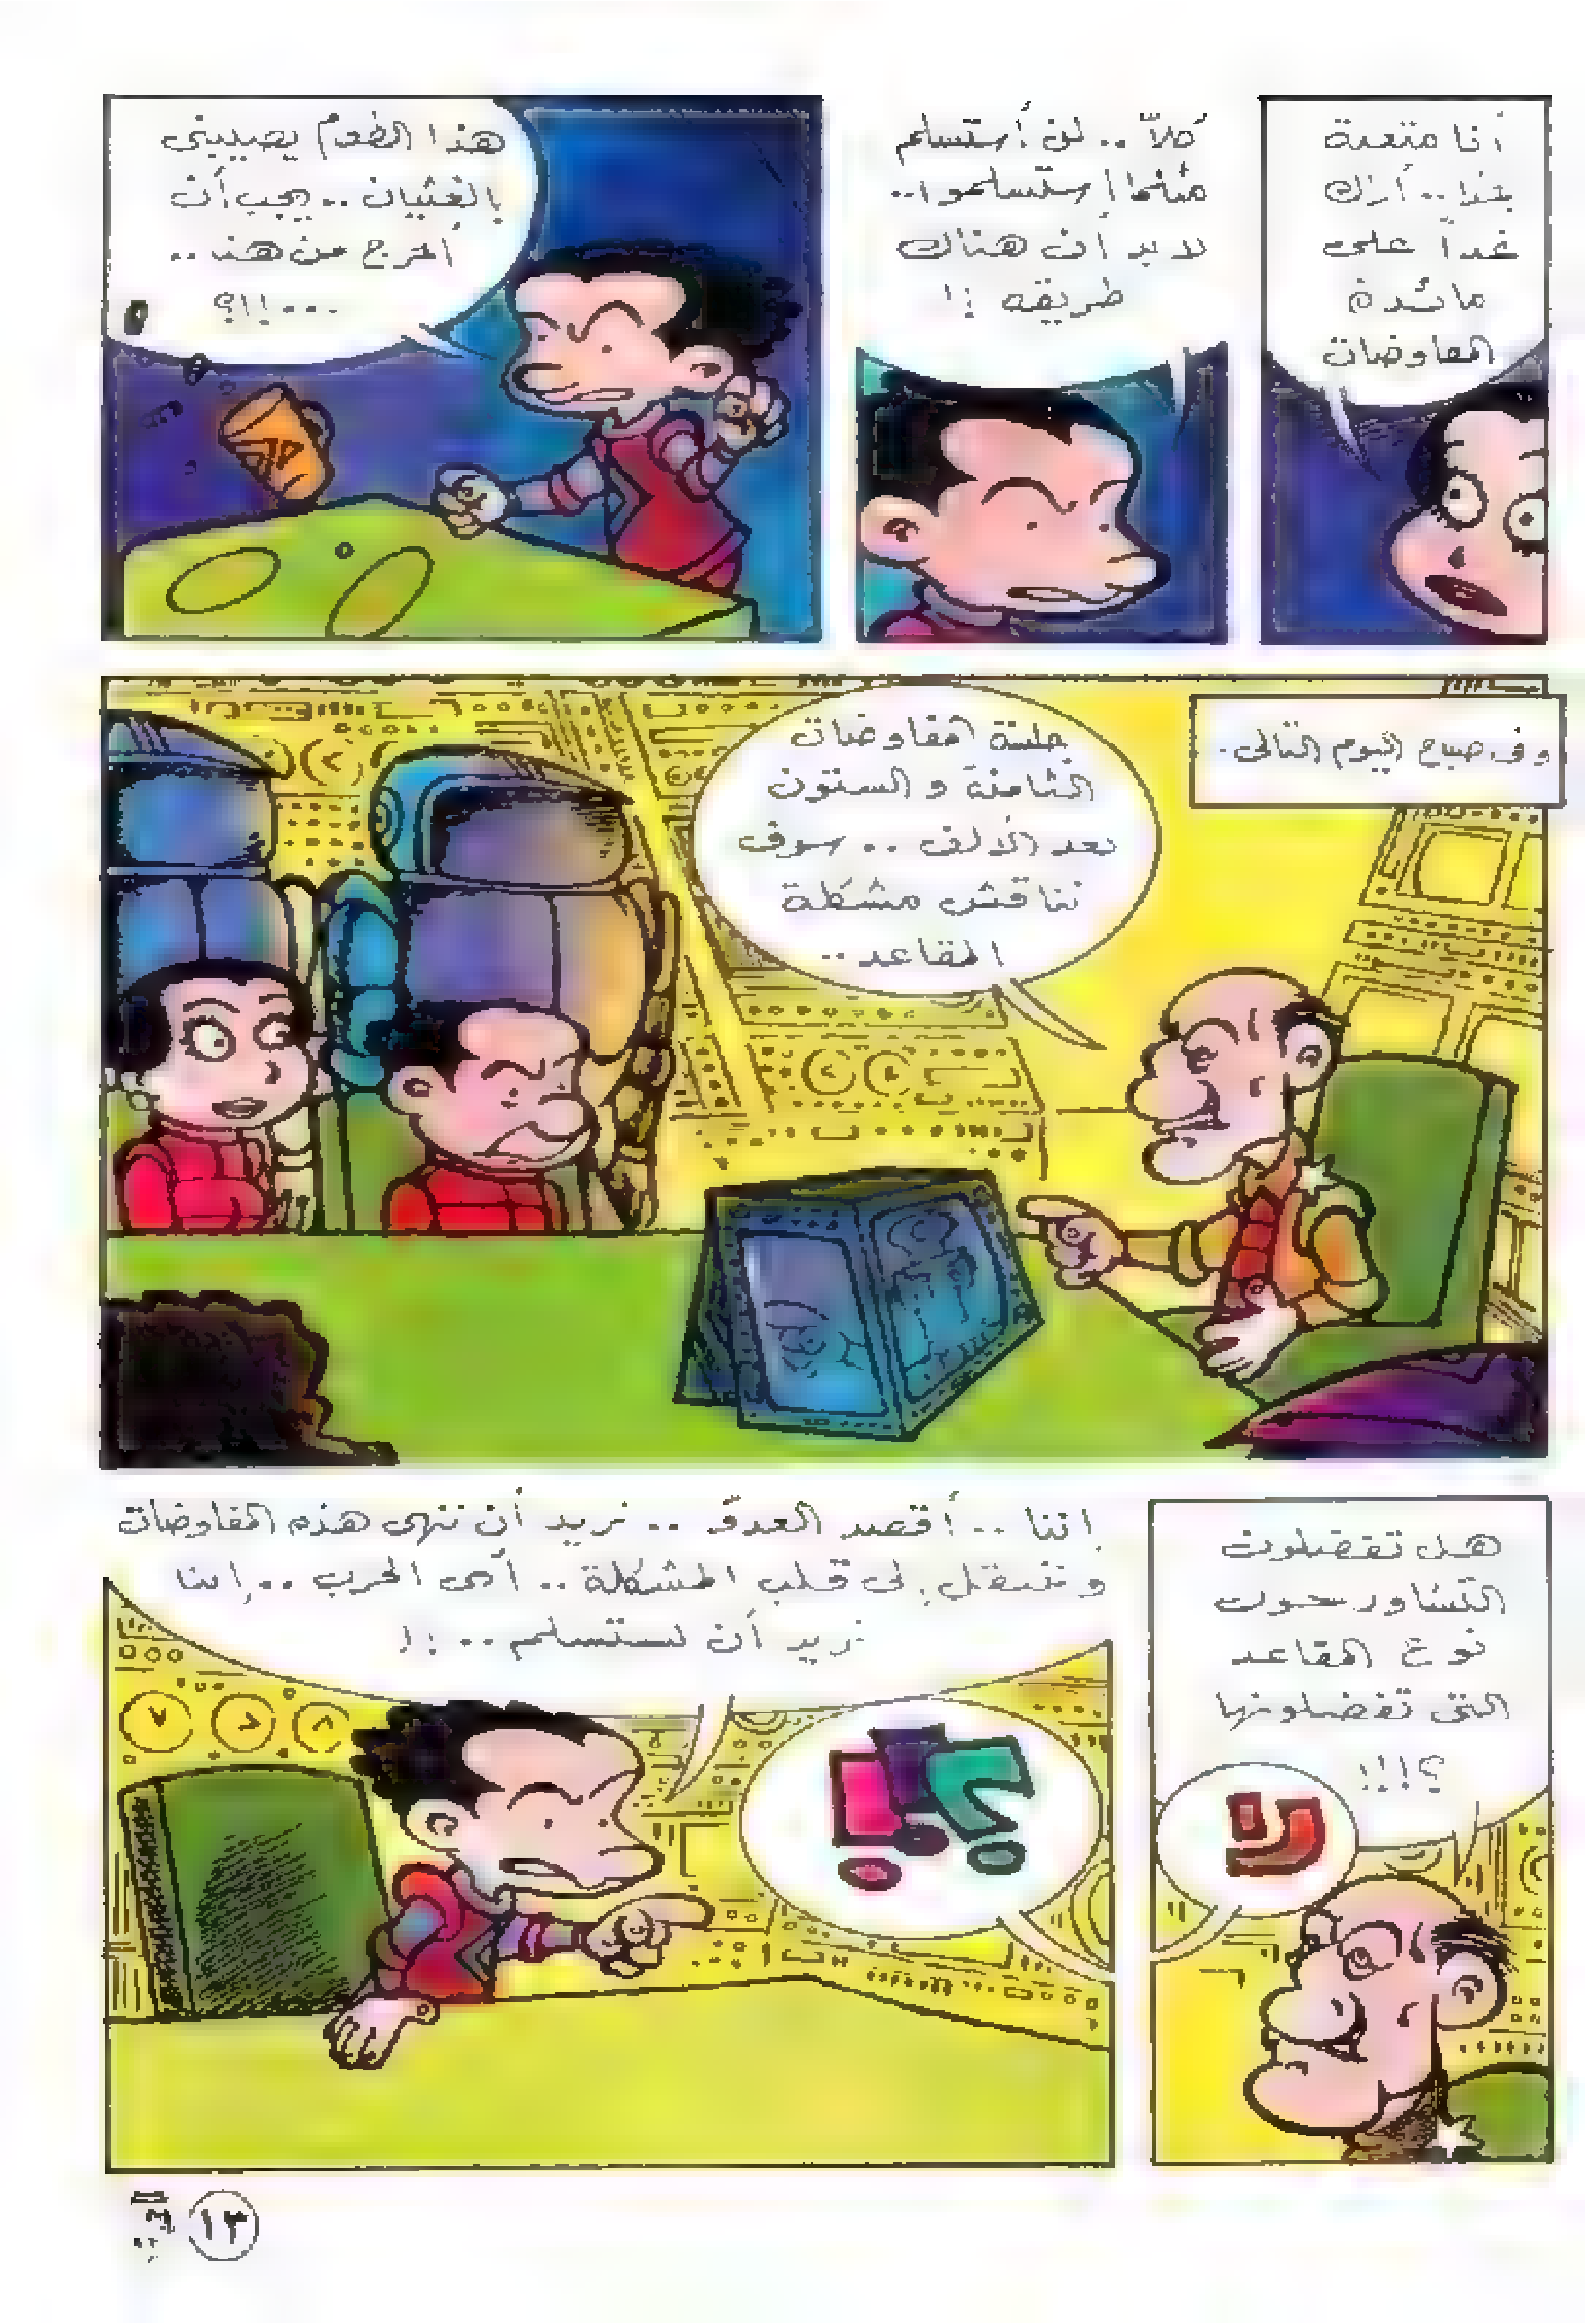 أنا متعبة
جدا.. أراك
غداً على
مائدة
المفاوضات
كلاّ.. لن أستسلم
مثلما إستسلموا..
لابد أن هناك
طريقه !!
هذا الطعام يصيبنى
بالغثيان.. يجب أن
أخرج من هنا..
...!!؟
وفى صباح اليوم التالى.
جلسة المفاوضات
الثامنة والستون
بعد الألف.. سوف
نناقش مشكلة
المقاعد..
هل تفضلون
التشاور حول
نوع المقاعد
التى تفضلونها
؟!!!
إننا.. أقصد العدو.. نريد أن ننهى هذه المفاوضات
وننتقل إلى قلب المشكلة.. أى الحرب.. إننا
نريد أن نستسلم..!!
؟!!
١٣